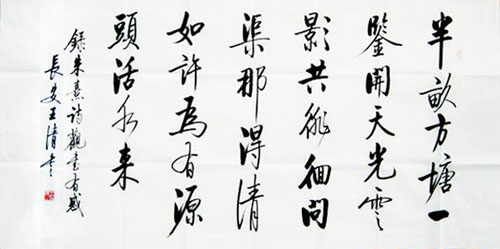 半畝方塘一
鑒開天光雲
影共徘徊問
渠那得清
如許為有源
頭活水来
録朱熹詩觀書有感
長安王清